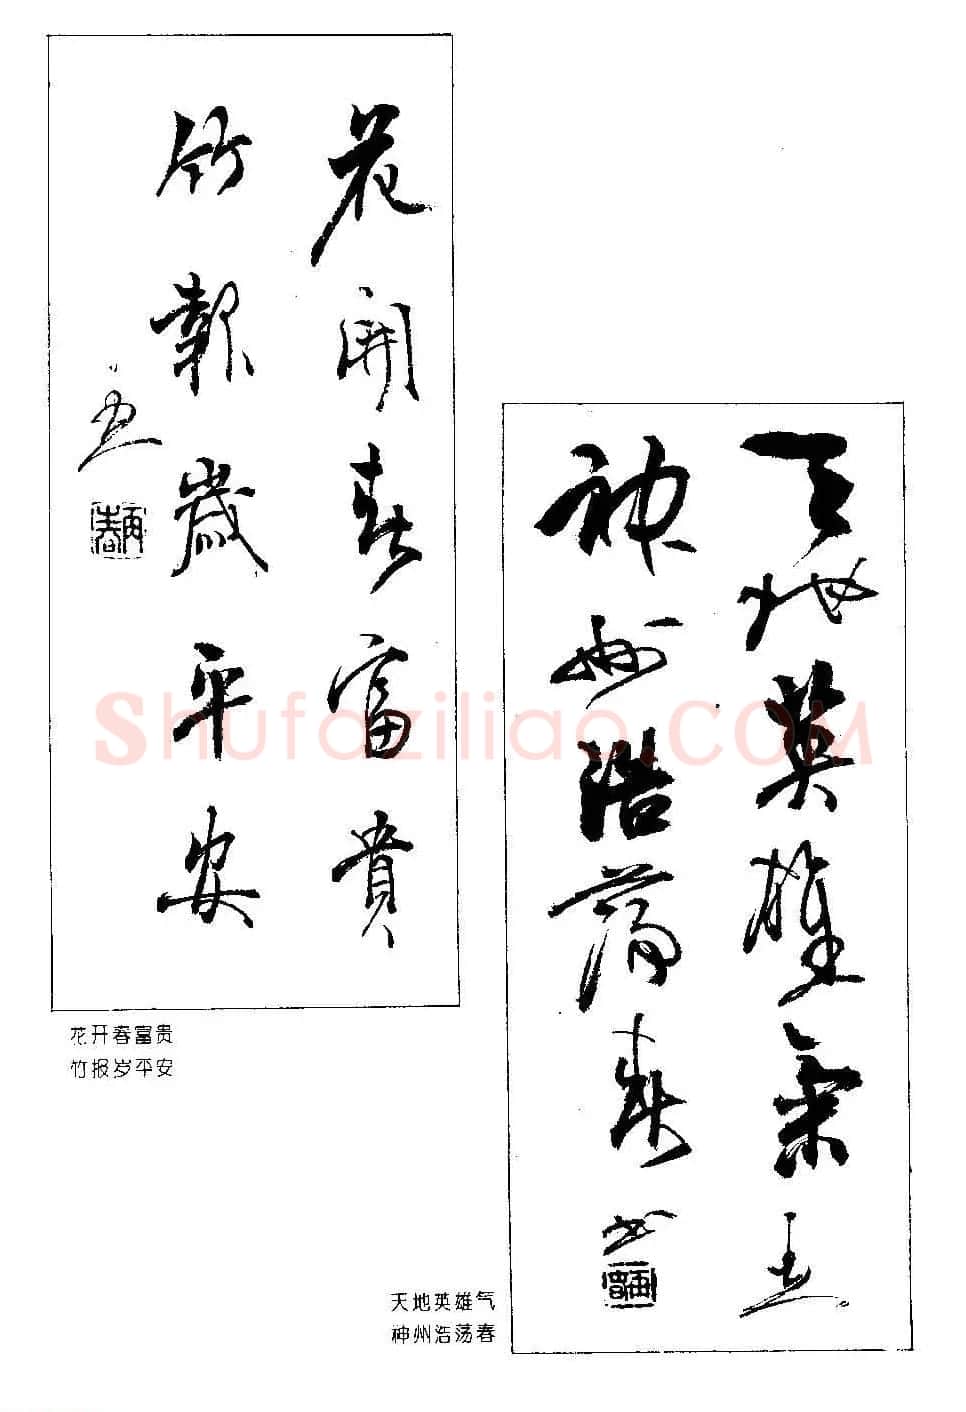 花開春富貴
竹報歲平安
花开春富贵
竹报岁平安
天地英雄氣
神州浩蕩春
天地英雄气
神州浩荡春
Shufaziliao.COM